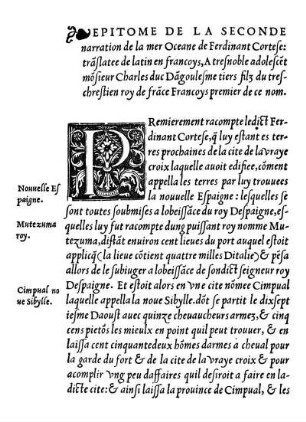 ❧EPITOME DE LA SECONDE
narration de la mer Oceane de Ferdinant Cortese:
trãslatee de latin en francoys, A tresnoble adolescēt
mõsieur Charles duc Dãgoulesme tiers filz du tres-
chrestien roy de frãce Francoys premier de ce nom.
PRemierement racompte ledict Fer-
dinant Cortese, q̃ luy estant es ter-
res prochaines de la cite de la vraye
croix laquelle auoit edifiee, cōment
appella les terres par luy trouuees
la nouuelle Espaigne: lesquelles se
sont toutes soubmises a lobeissãce du roy Despaigne, es-
quelles luy fut racompte dung puissant roy nomme Mu-
tezuma, distãt enuiron cent lieues du port auquel estoit
applicq̃ (la lieue cõtient quatre milles Ditalie) & pēsa
allors de le subiuger a lobeissãce de sondict seigneur roy
Despaigne. Et estoit alors en vne cite nõmee Cimpual
laquelle appella la noue Sibylle. dõt se partit le dixsept
iesme Daoust auec quinze cheuaucheurs armez, & cinq
cens pietõs les mieulx en point quil peut trouuer, & en
laissa cent cinquantedeux hõmes darmes a cheual pour
la garde du fort & de la cite de la vraye croix & pour
acomplir vng peu daffaires quil desiroit a faire en la-
dicte cite: & ainsi laissa la prouince de Cimpual, & les
Nouuelle Es
paigne.
Mutezuma
roy.
Cimpual no
ue Sibylle.